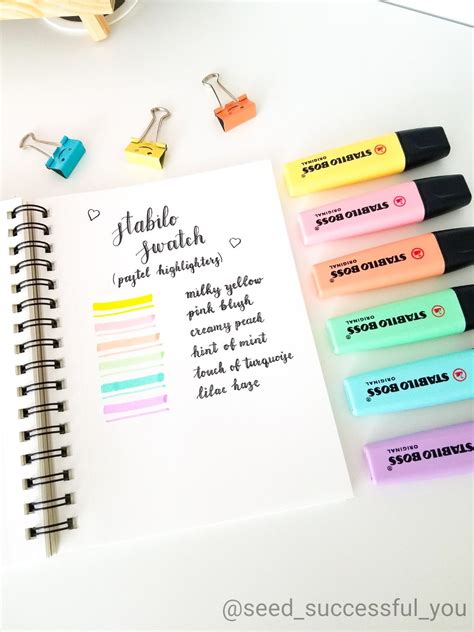 stabilo
swatch
(pastel highlighters)
milky yellow
pink blush
creamy peach
hint of mint
touch of turquoise
lilac haze
STABILO BOSS
ORIGINAL
STABILO BOSS
ORIGINAL
STABILO BOSS
ORIGINAL
STABILO BOSS
ORIGINAL
STABILO BOSS
ORIGINAL
STABILO BOSS
ORIGINAL
@seed_successful_you